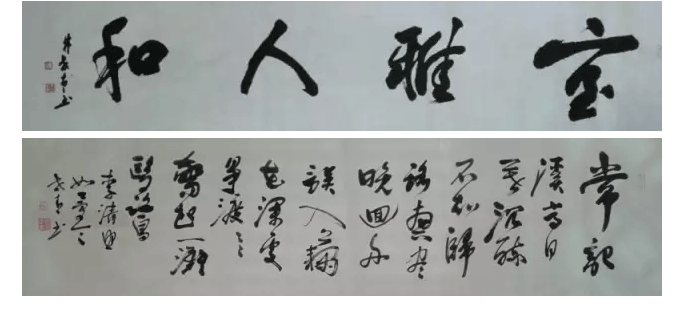 室雅人和
常記
溪亭日
暮沉醉
不知歸
路興盡
晚迴舟
誤入藕
花深處
爭渡々々
驚起一灘
鷗鷺
李清照
如夢令
书